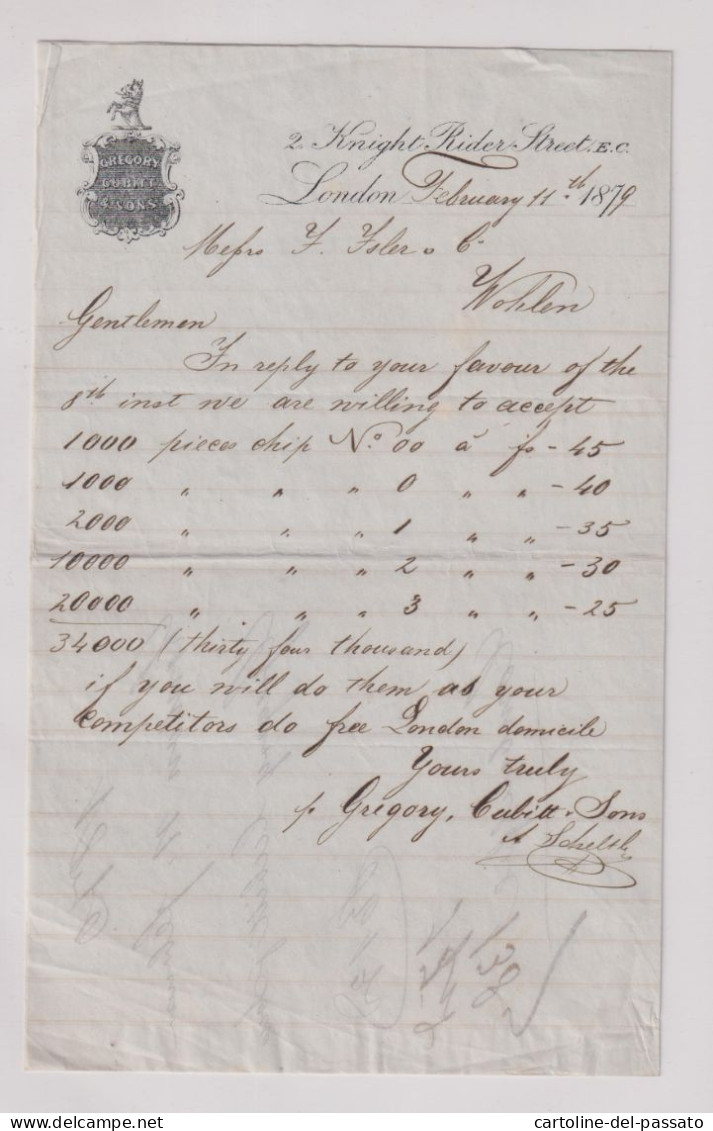 GREGORY
CUBITT
& SONS
2. Knight Rider Street. E.C.
London February 11th 1879
Messrs F. Isler & Co
Wohlen
Gentlemen
In reply to your favour of the
8th inst we are willing to accept
1000 pieces chip No 00 à fs - 45
1000 " " " 0 " " - 40
2000 " " " 1 " " - 35
10000 " " " 2 " " - 30
20000 " " " 3 " " - 25
34000 (thirty four thousand)
if you will do them as your
competitors do free London domicile
Yours truly
p Gregory, Cubitt & Sons
delcampe.net
cartoline-del-passato